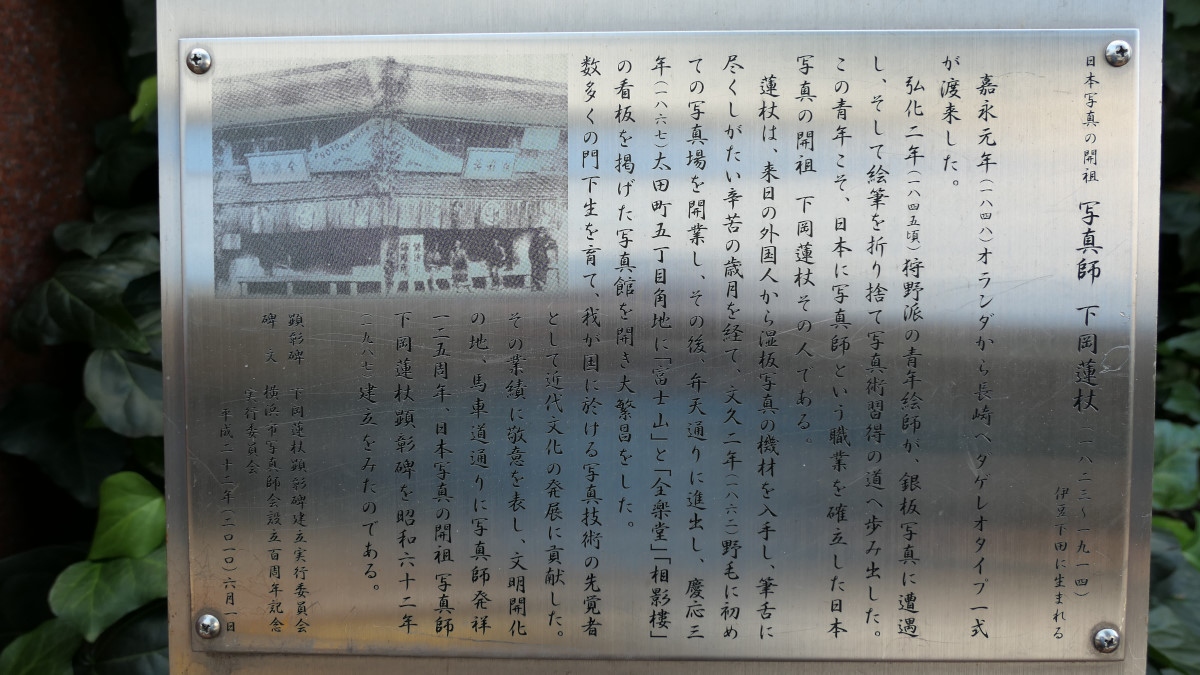 日本写真の開祖 写真師 下岡蓮杖(一八二三〜一九一四)
伊豆下田に生まれる
嘉永元年(一八四八)オランダから長崎へダゲレオタイプ一式
が渡来した。
弘化二年(一八四五頃)狩野派の青年絵師が、銀板写真に遭遇
し、そして絵筆を折り捨て写真術習得の道へ歩み出した。
この青年こそ、日本に写真師という職業を確立した日本
写真の開祖 下岡蓮杖その人である。
蓮杖は、来日の外国人から湿板写真の機材を入手し、筆舌に
尽くしがたい辛苦の歳月を経て、文久二年(一八六二)野毛に初め
ての写真場を開業し、その後、弁天通りに進出し、慶応三
年(一八六七)太田町五丁目角地に「富士山」と「全楽堂」「相影樓」
の看板を掲げた写真館を開き大繁昌をした。
数多くの門下生を育て、我が国に於ける写真技術の先覚者
として近代文化の発展に貢献した。
その業績に敬意を表し、文明開化
の地、馬車道通りに写真師発祥
一二五周年、日本写真の開祖 写真師
下岡蓮杖顕彰碑を昭和六十二年
(一九八七)建立をみたのである。
顕彰碑 下岡蓮杖顕彰碑建立実行委員会
碑文 横浜市写真師会設立百周年記念
実行委員会
平成二十二年(二〇一〇)六月一日